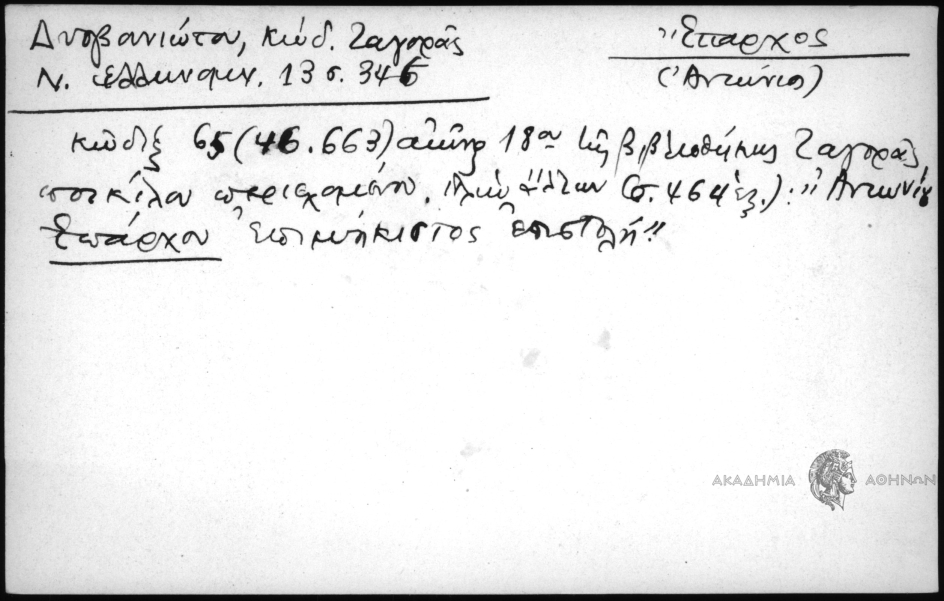 Δυοβουνιώτου, Κώδ. Ζαγορᾶς
Ν. Ἑλληνομν. 13 σ. 345
Ἔπαρχος
(Ἀντώνιος)
Κῶδιξ 65 (46.663) αἰῶνος 18ου τῆς βιβλιοθήκης Ζαγορᾶς,
ποικίλου περιεχομένου, πλὴν ἄλλων (σ. 464 ἑξ.): "Ἀντωνίου
Ἐπάρχου ἐπιμήκιστος ἐπιστολή"
ΑΚΑΔΗΜΙΑ ΑΘΗΝΩΝ